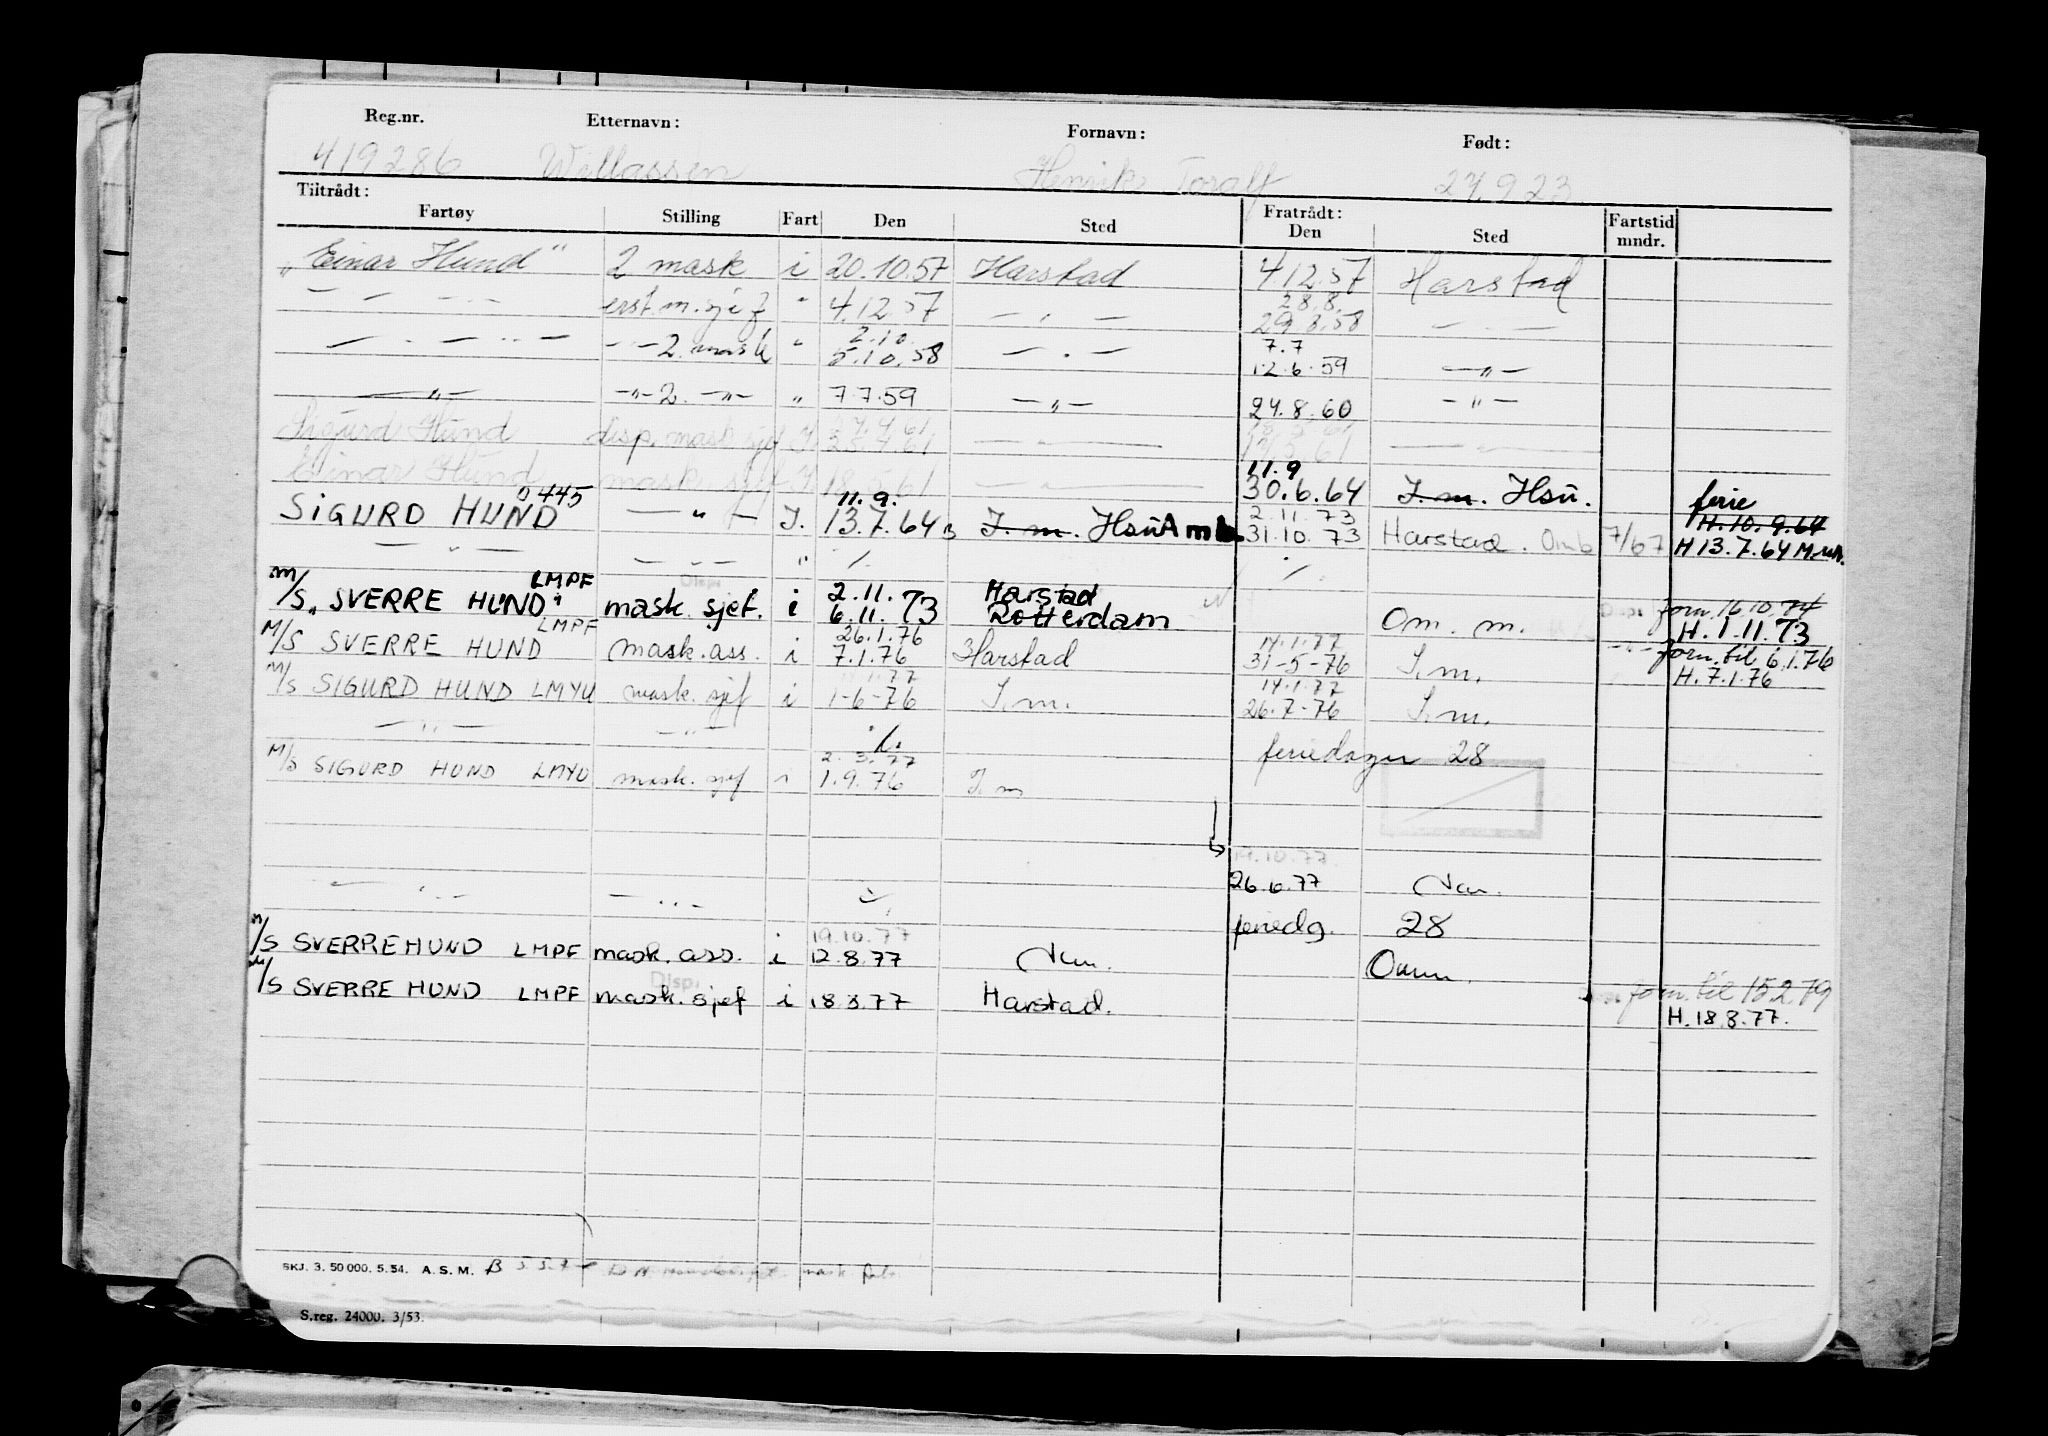 Reg.nr. Etternavn: Fornavn: Født:
419286 Willassen Henrik Toralf 27.9.23
Tiltrådt: Fratrådt:
Fartøy Stilling Fart Den Sted Den Sted Fartstid mndr.
„Einar Hund" 2 mask i 20.10.57 Harstad 4.12.57 Harstad
— " — erst. m.sjef " 4.12.57 — " — 28.8. 29.8.58 — " —
— " — — " — 2. mask " 2.10. 5.10.58 — " — 7.7 12.6.59 — " —
— " — — " — 2. — " — " 7.7.59 — " — 24.8.60 — " —
Sigurd Hund disp. mask sjef I. — " — — " —
Einar Hund mask. sjef I. — " — 11.9
SIGURD HUND 0445 — " — I. 11.9. 13.7.64 I.m. Hsü Amb. 30.6.64 I.m. Hsü. ferie H.10.9.64
— " — — " — " ·/. 2.11.73 31.10.73 Harstad. Omb 7/67 H 13.7.64
M/S „SVERRE HUND" LMPF Disp. mask. sjef. i 2.11. 6.11.73 Harstad Rotterdam ·/. Om. m. Disp. forn. 16.10.74 H. 1.11.73
M/S SVERRE HUND LMPF mask. ass. i 26.1.76 7.1.76 Harstad 14.1.77 31-5-76 I.m. — " — forn. til 6.1.76 H. 7.1.76
M/S SIGURD HUND LMYU mask. sjef i 1-6-76 I.m. 14.1.77 26.7-76 I.m.
— " — — " — ·/. feriedager 28
M/S SIGURD HUND LMYU mask. sjef i 2.3.77 1.9.76 I m
19.10.77.
— " — — " — 26.6.77
feriedg. 28
M/S SVERRE HUND LMPF mask. ass. i 19.10.77 12.8.77
M/S SVERRE HUND LMPF Disp. mask. sjef i 18.8.77 Harstad. forn. til 15.2.79
H. 18.8.77.
SKJ. 3. 50 000. 5.54. A.S.M.
S.reg. 24000. 3/53.